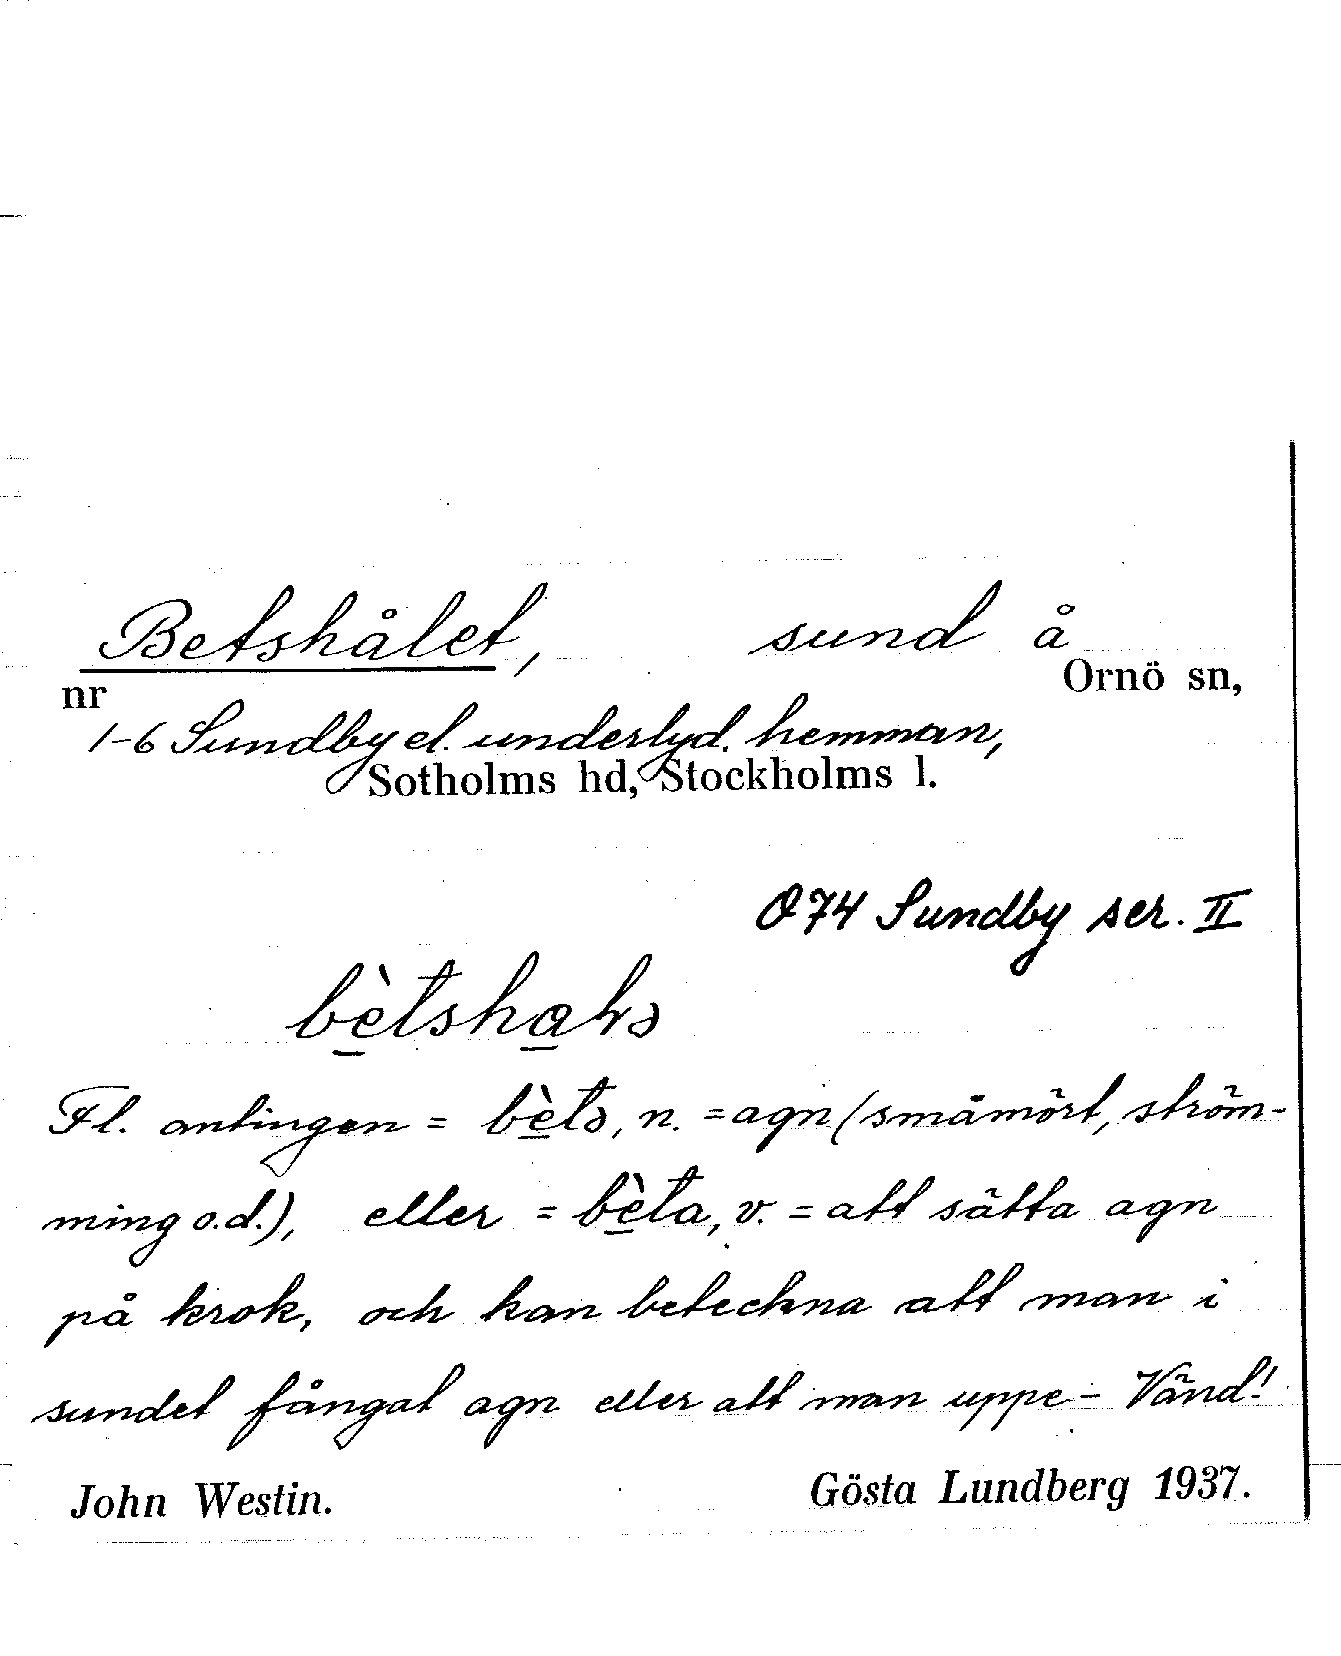 Betshålet, sund å
nr Ornö sn,
1-6 Sundby el. underlyd. hemman,
Sotholms hd, Stockholms l.
074 Sundby ser. II
Fl. antingen = bètə, n. = agn (småmört, ström-
ming o.d.), eller = bèta, v. = att sätta agn
på krok, och kan beteckna att man i
sundet fångat agn eller att man uppe- Vänd!
John Westin. Gösta Lundberg 1937.